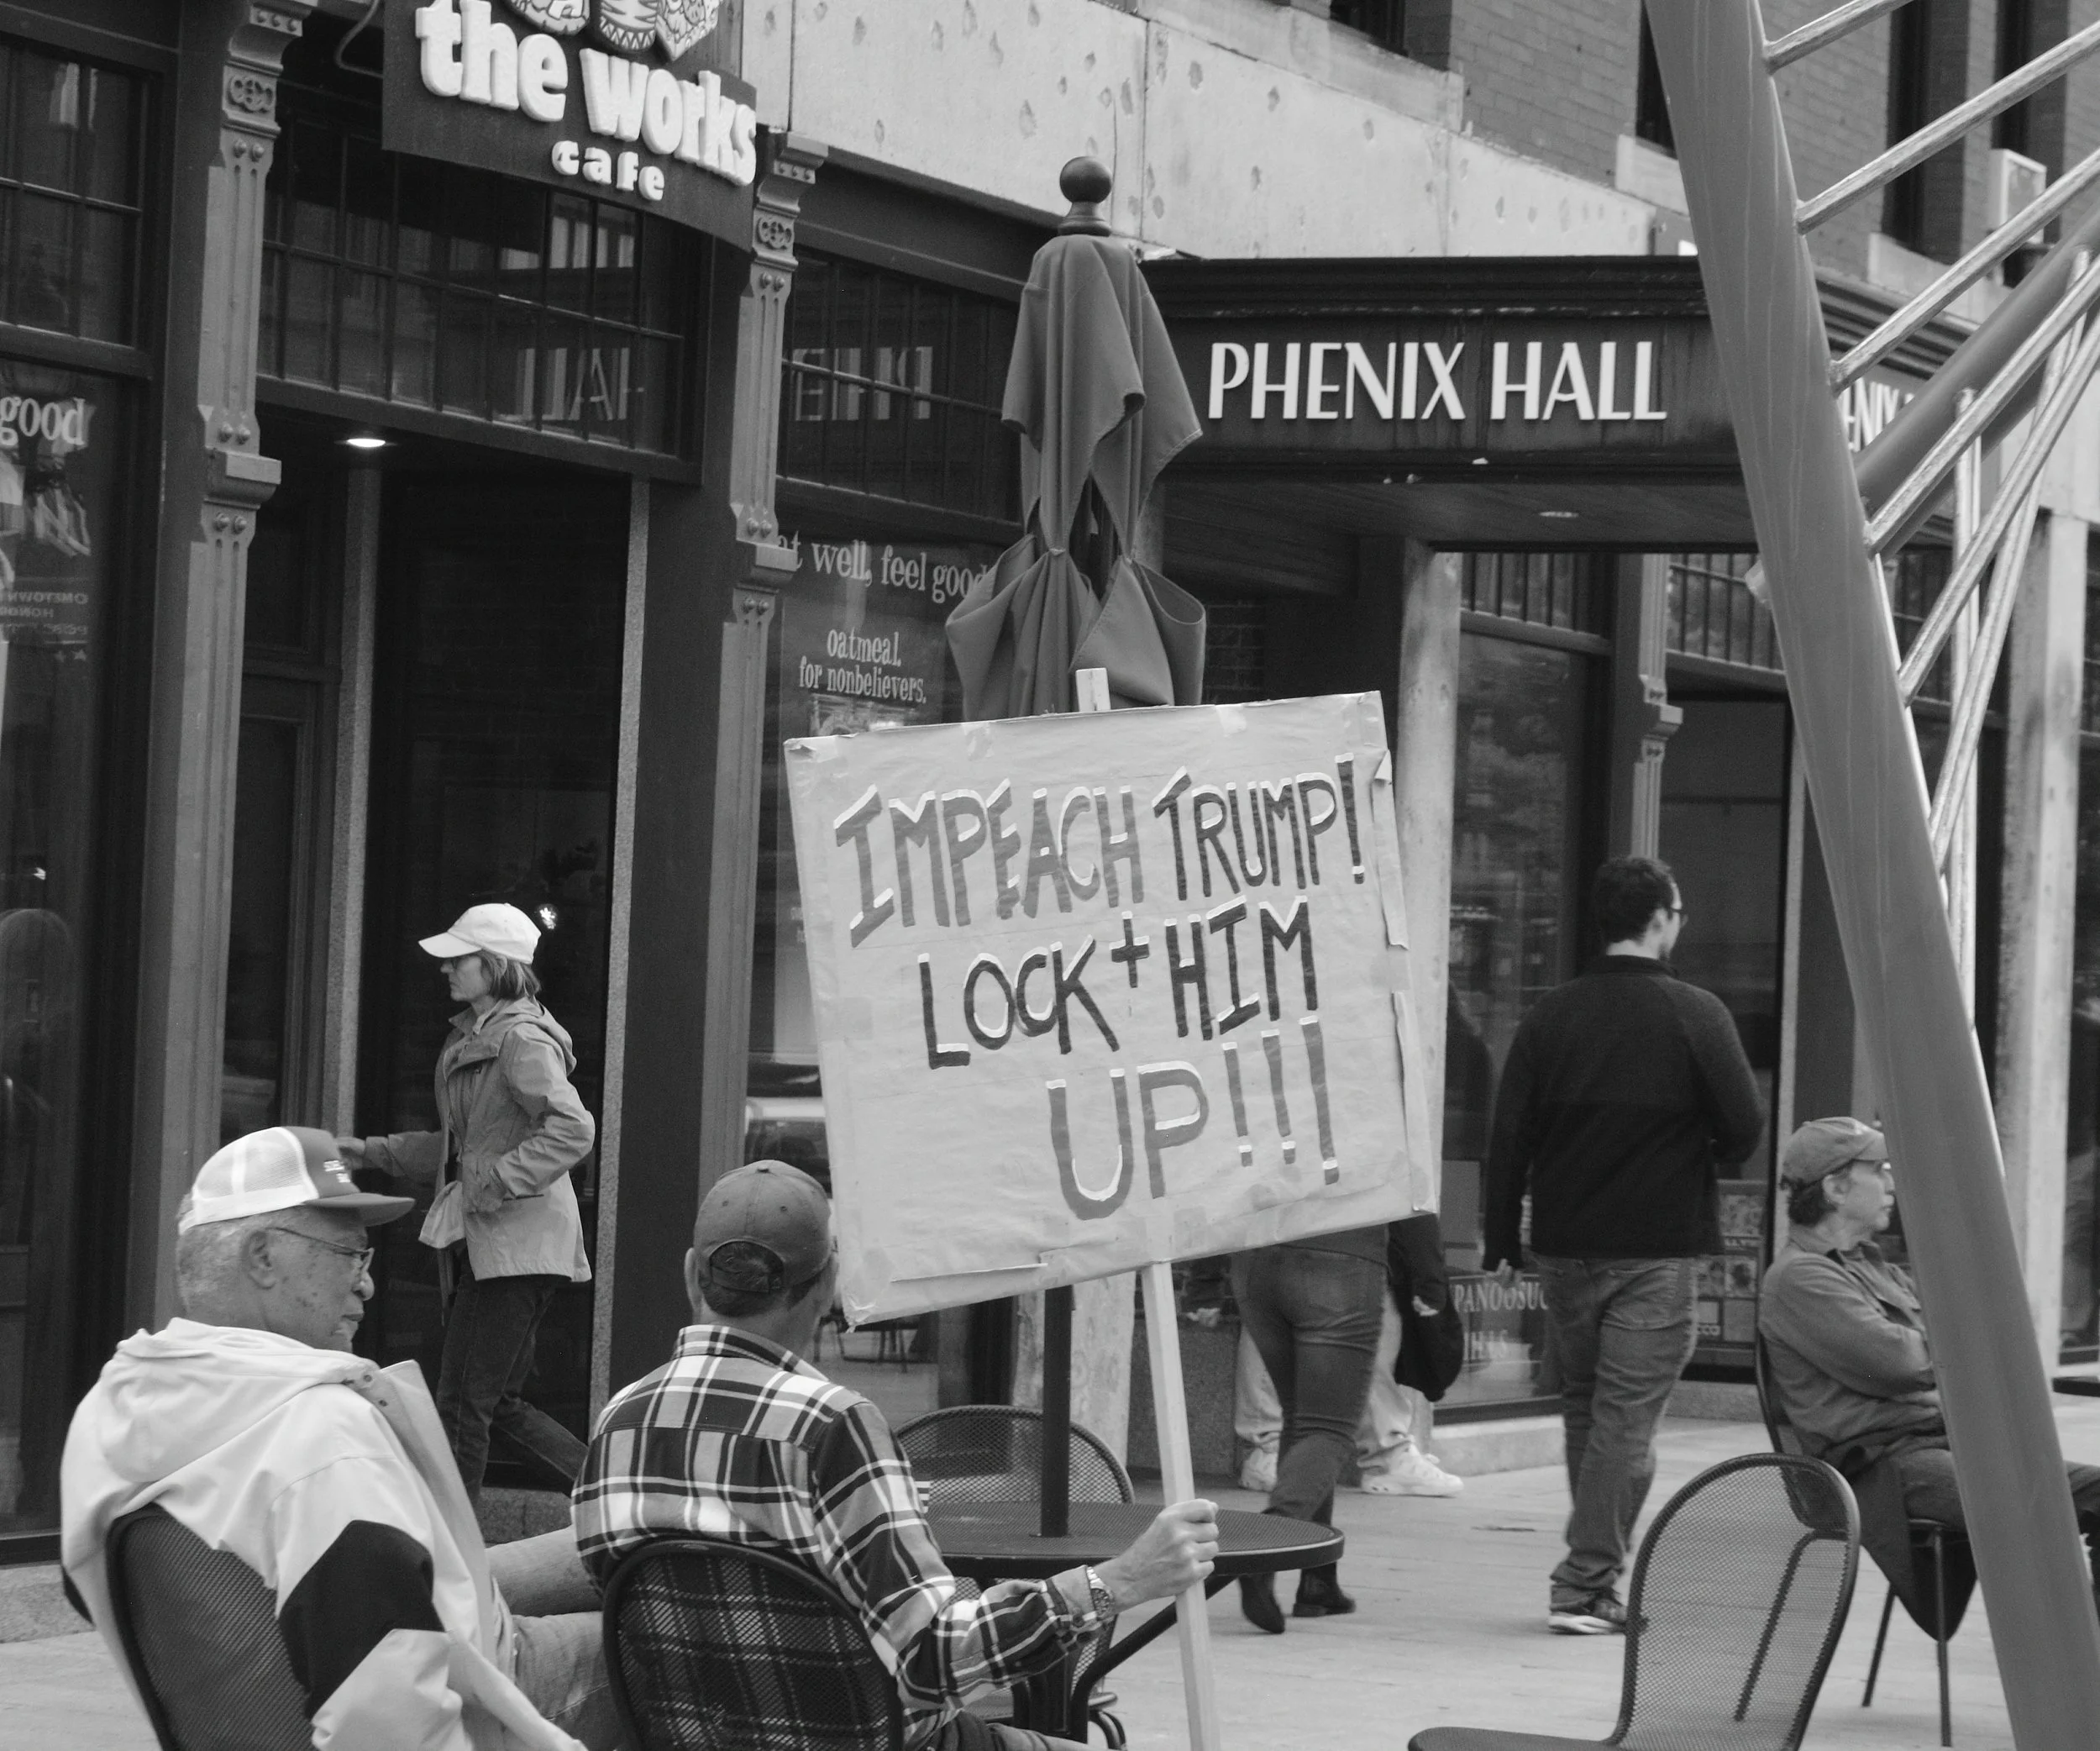 the works
cafe
PHENIX HALL
good
at well, feel good
oatmeal.
for nonbelievers.
IMPEACH TRUMP!
LOCK + HIM
UP!!!